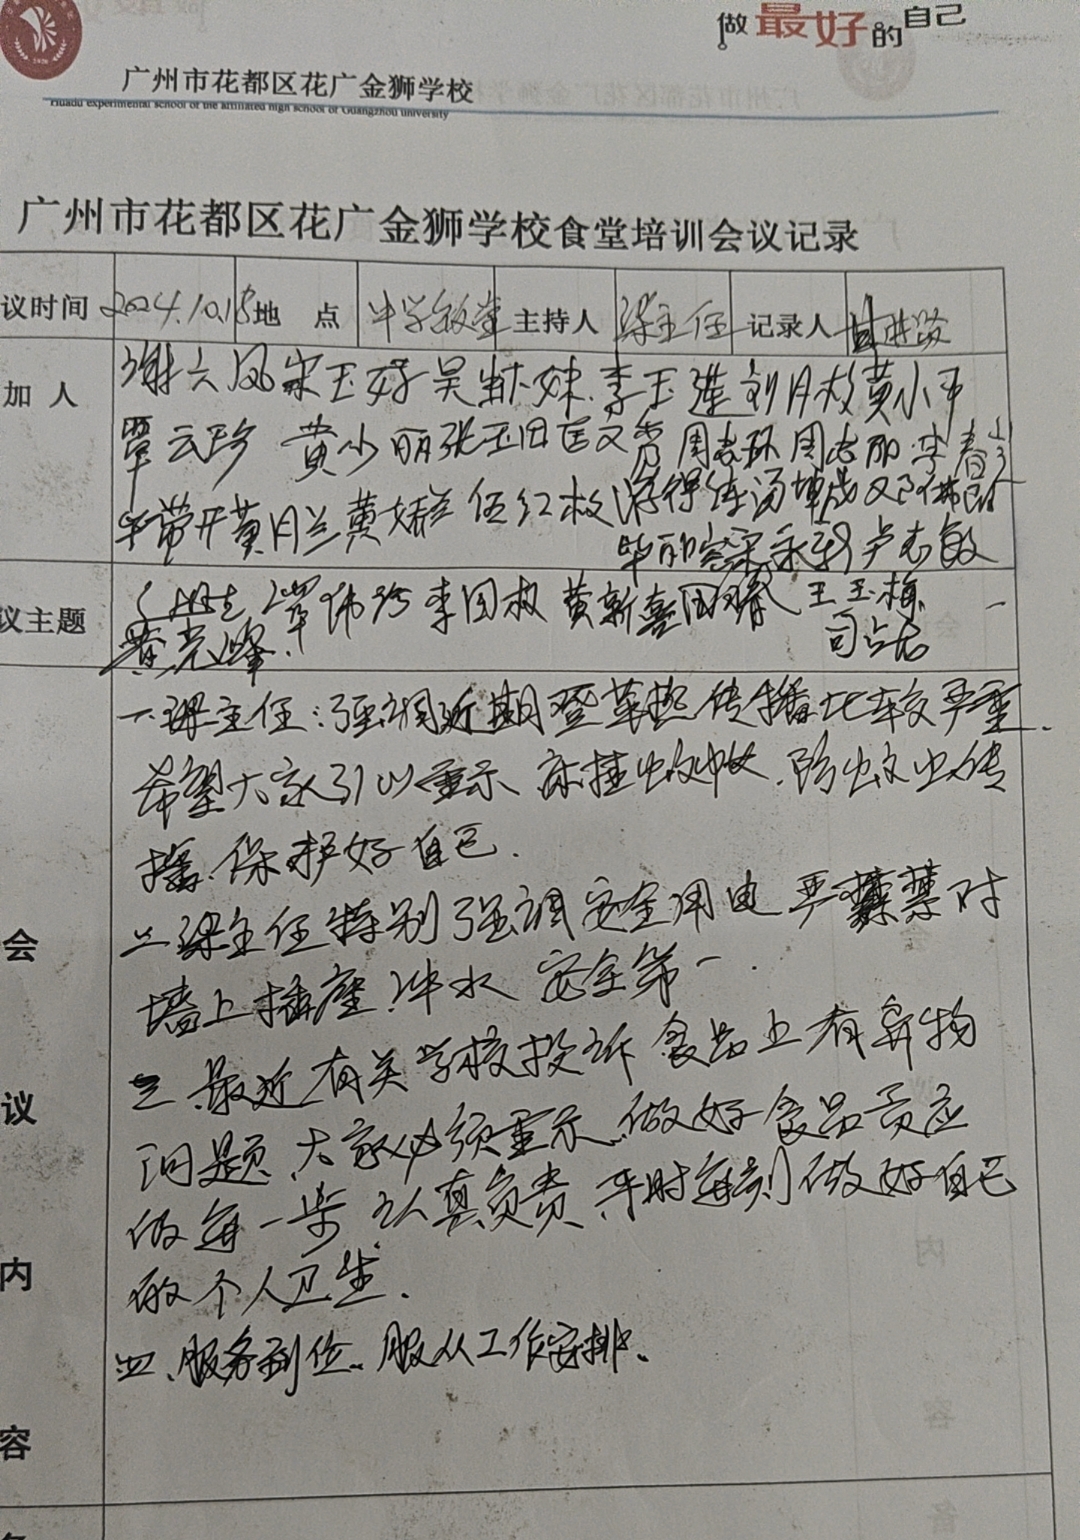 做最好的自己
广州市花都区花广金狮学校
Huadu experimental school of the affiliated high school of Guangzhou university
广州市花都区花广金狮学校食堂培训会议记录
议时间 2024.10.15 地 点 中学饭堂 主持人 梁主任 记录人
加 人 谢六凤 宋玉好 吴 妹 李玉莲 刘月枚 黄小平
覃云珍 黄少丽 张玉田 匡文秀 周志环 周志丽 李春
带开 黄月兰 黄娇兰 伍红枚 游得练 汤
毕丽 宋永 卢志敏
议主题 覃 李国权 黄新喜 王玉梅
黄光峰
一.梁主任:强调近期登革热传播比较严重.
希望大家引以重示 床挂蚊帐.防蚊虫传
播.保护好自己.
二 梁主任特别强调安全用电 严禁对
墙上插座冲水 安全第一.
三.最近有关学校投诉食品上有异物
问题.大家必须重示.做好食品
做每一步认真负责 时每刻做好自己
做个人卫生.
四.服务到位.服从工作安排.
会
议
内
容